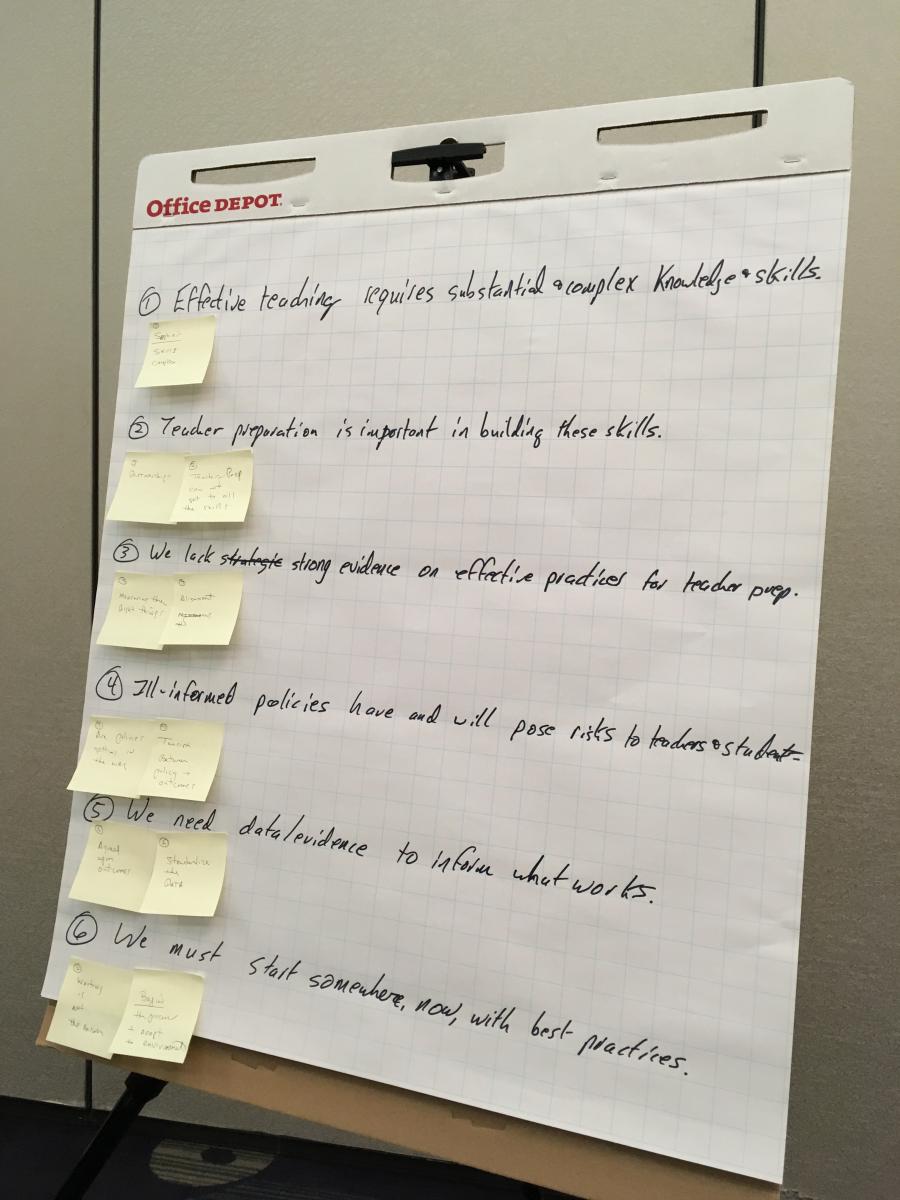 Office DEPOT
① Effective teaching requires substantial & complex Knowledge & skills.
skills
complex
② Teacher preparation is important in building these skills.
Partnerships
Teacher Prep
can not
get to all
the skills
③ We lack strategic strong evidence on effective practices for teacher prep.
Measuring the
right things
Alignment
④ Ill-informed policies have and will pose risks to teachers & student
Are policies
getting in
the way
Between
policy →
outcomes
⑤ We need data/evidence to inform what works.
Agreed
upon
outcomes
Standardize
the
DATA
⑥ We must start somewhere, now, with best practices.
Waiting
is
not
the
Begin
the
+ adapt
to environment